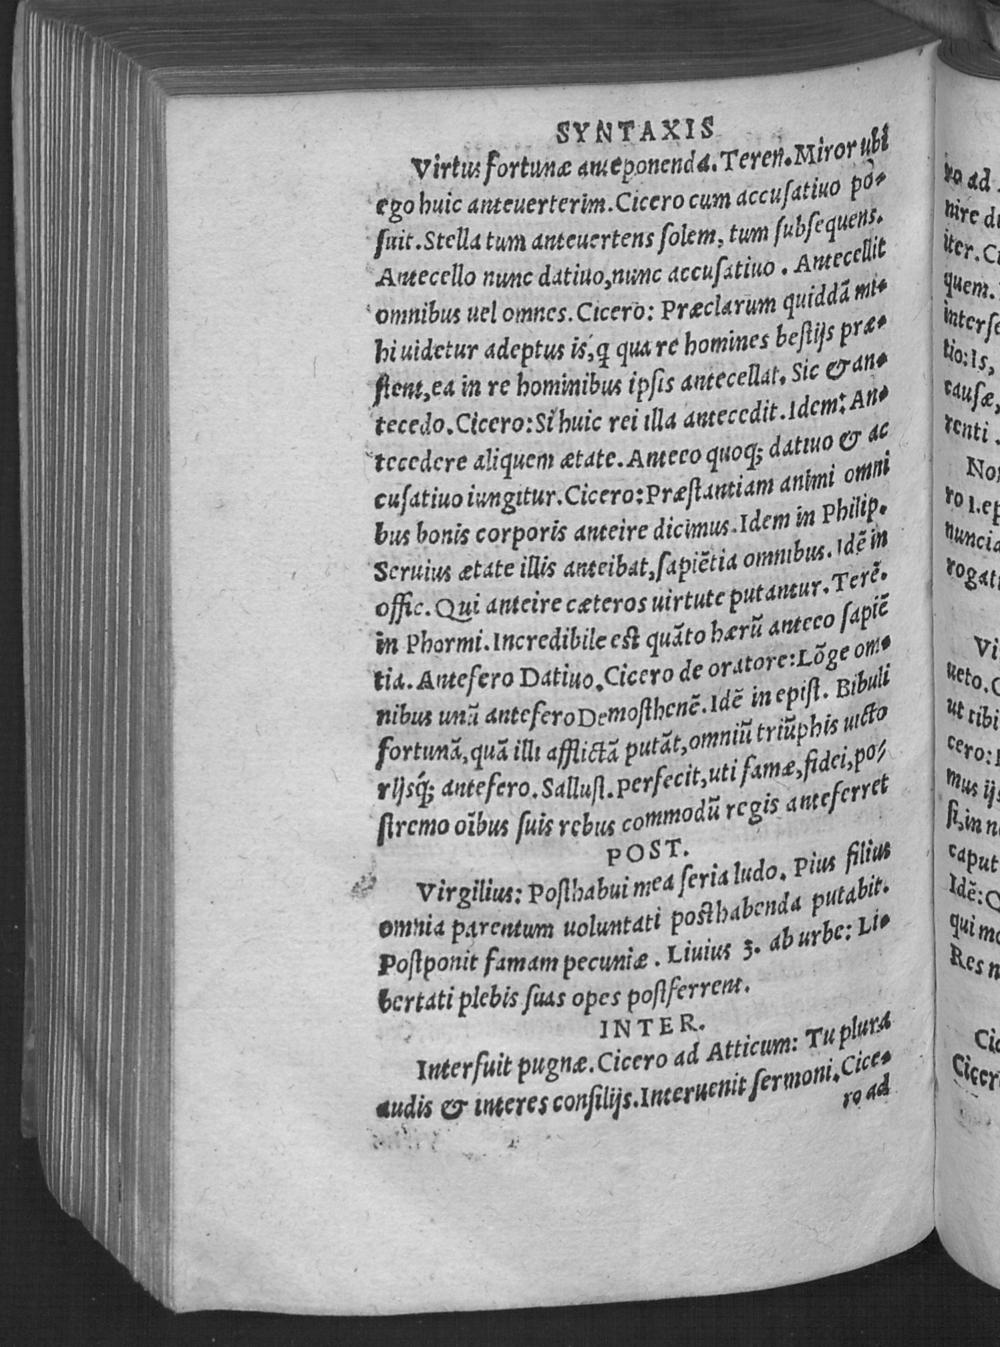 SYNTAXIS
Virtus fortunæ anteponenda. Teren. Miror ubi
ego huic anteuerterim. Cicero cum accusatiuo po-
suit. Stella tum anteuertens solem, tum subsequens.
Antecello nunc datiuo, nunc accusatiuo. Antecellit
omnibus uel omnes. Cicero: Præclarum quiddã mi-
hi uidetur adeptus is, q̃ qua re homines bestijs præ-
stent, ea in re hominibus ipsis antecellat. Sic & an-
tecedo. Cicero: Si huic rei illa antecedit. Idem: An-
tecedere aliquem ætate. Anteeo quoq; datiuo & ac
cusatiuo iungitur. Cicero: Præstantiam animi omni
bus bonis corporis anteire dicimus. Idem in Philip.
Seruius ætate illis anteibat, sapiẽtia omnibus. Idẽ in
offic. Qui anteire cæteros uirtute putantur. Terẽ.
in Phormi. Incredibile est quãto hærũ anteeo sapiẽ
tia. Antefero Datiuo. Cicero de oratore: Lõge om-
nibus unũ antefero Demosthenẽ. Idẽ in epist. Bibuli
fortunã, quã illi afflictã putãt, omniũ triũphis uicto
rijsq́; antefero. Sallust. perfecit, uti famæ, fidei, po-
stremo oĩbus suis rebus commodũ regis anteferret
POST.
Virgilius: Posthabui mea seria ludo. Pius filius
omnia parentum uoluntati posthabenda putabit.
Postponit famam pecuniæ. Liuius 3. ab urbe: Li-
bertati plebis suas opes postferrent.
INTER.
Interfuit pugnæ. Cicero ad Atticum: Tu plura
audis & interes consilijs. Interuenit sermoni. Cice-
ro ad
ro ad
nire di
iter. Ci
quem.
interse
tio: Is,
causæ,
renti.
Non
ro 1. ep
nuncia
rogati
Vi
ueto. C
ut tibi
cero:
mus ijs
si, in n
caput
Idẽ: Q
qui mo
Res n
Cic
Cicer